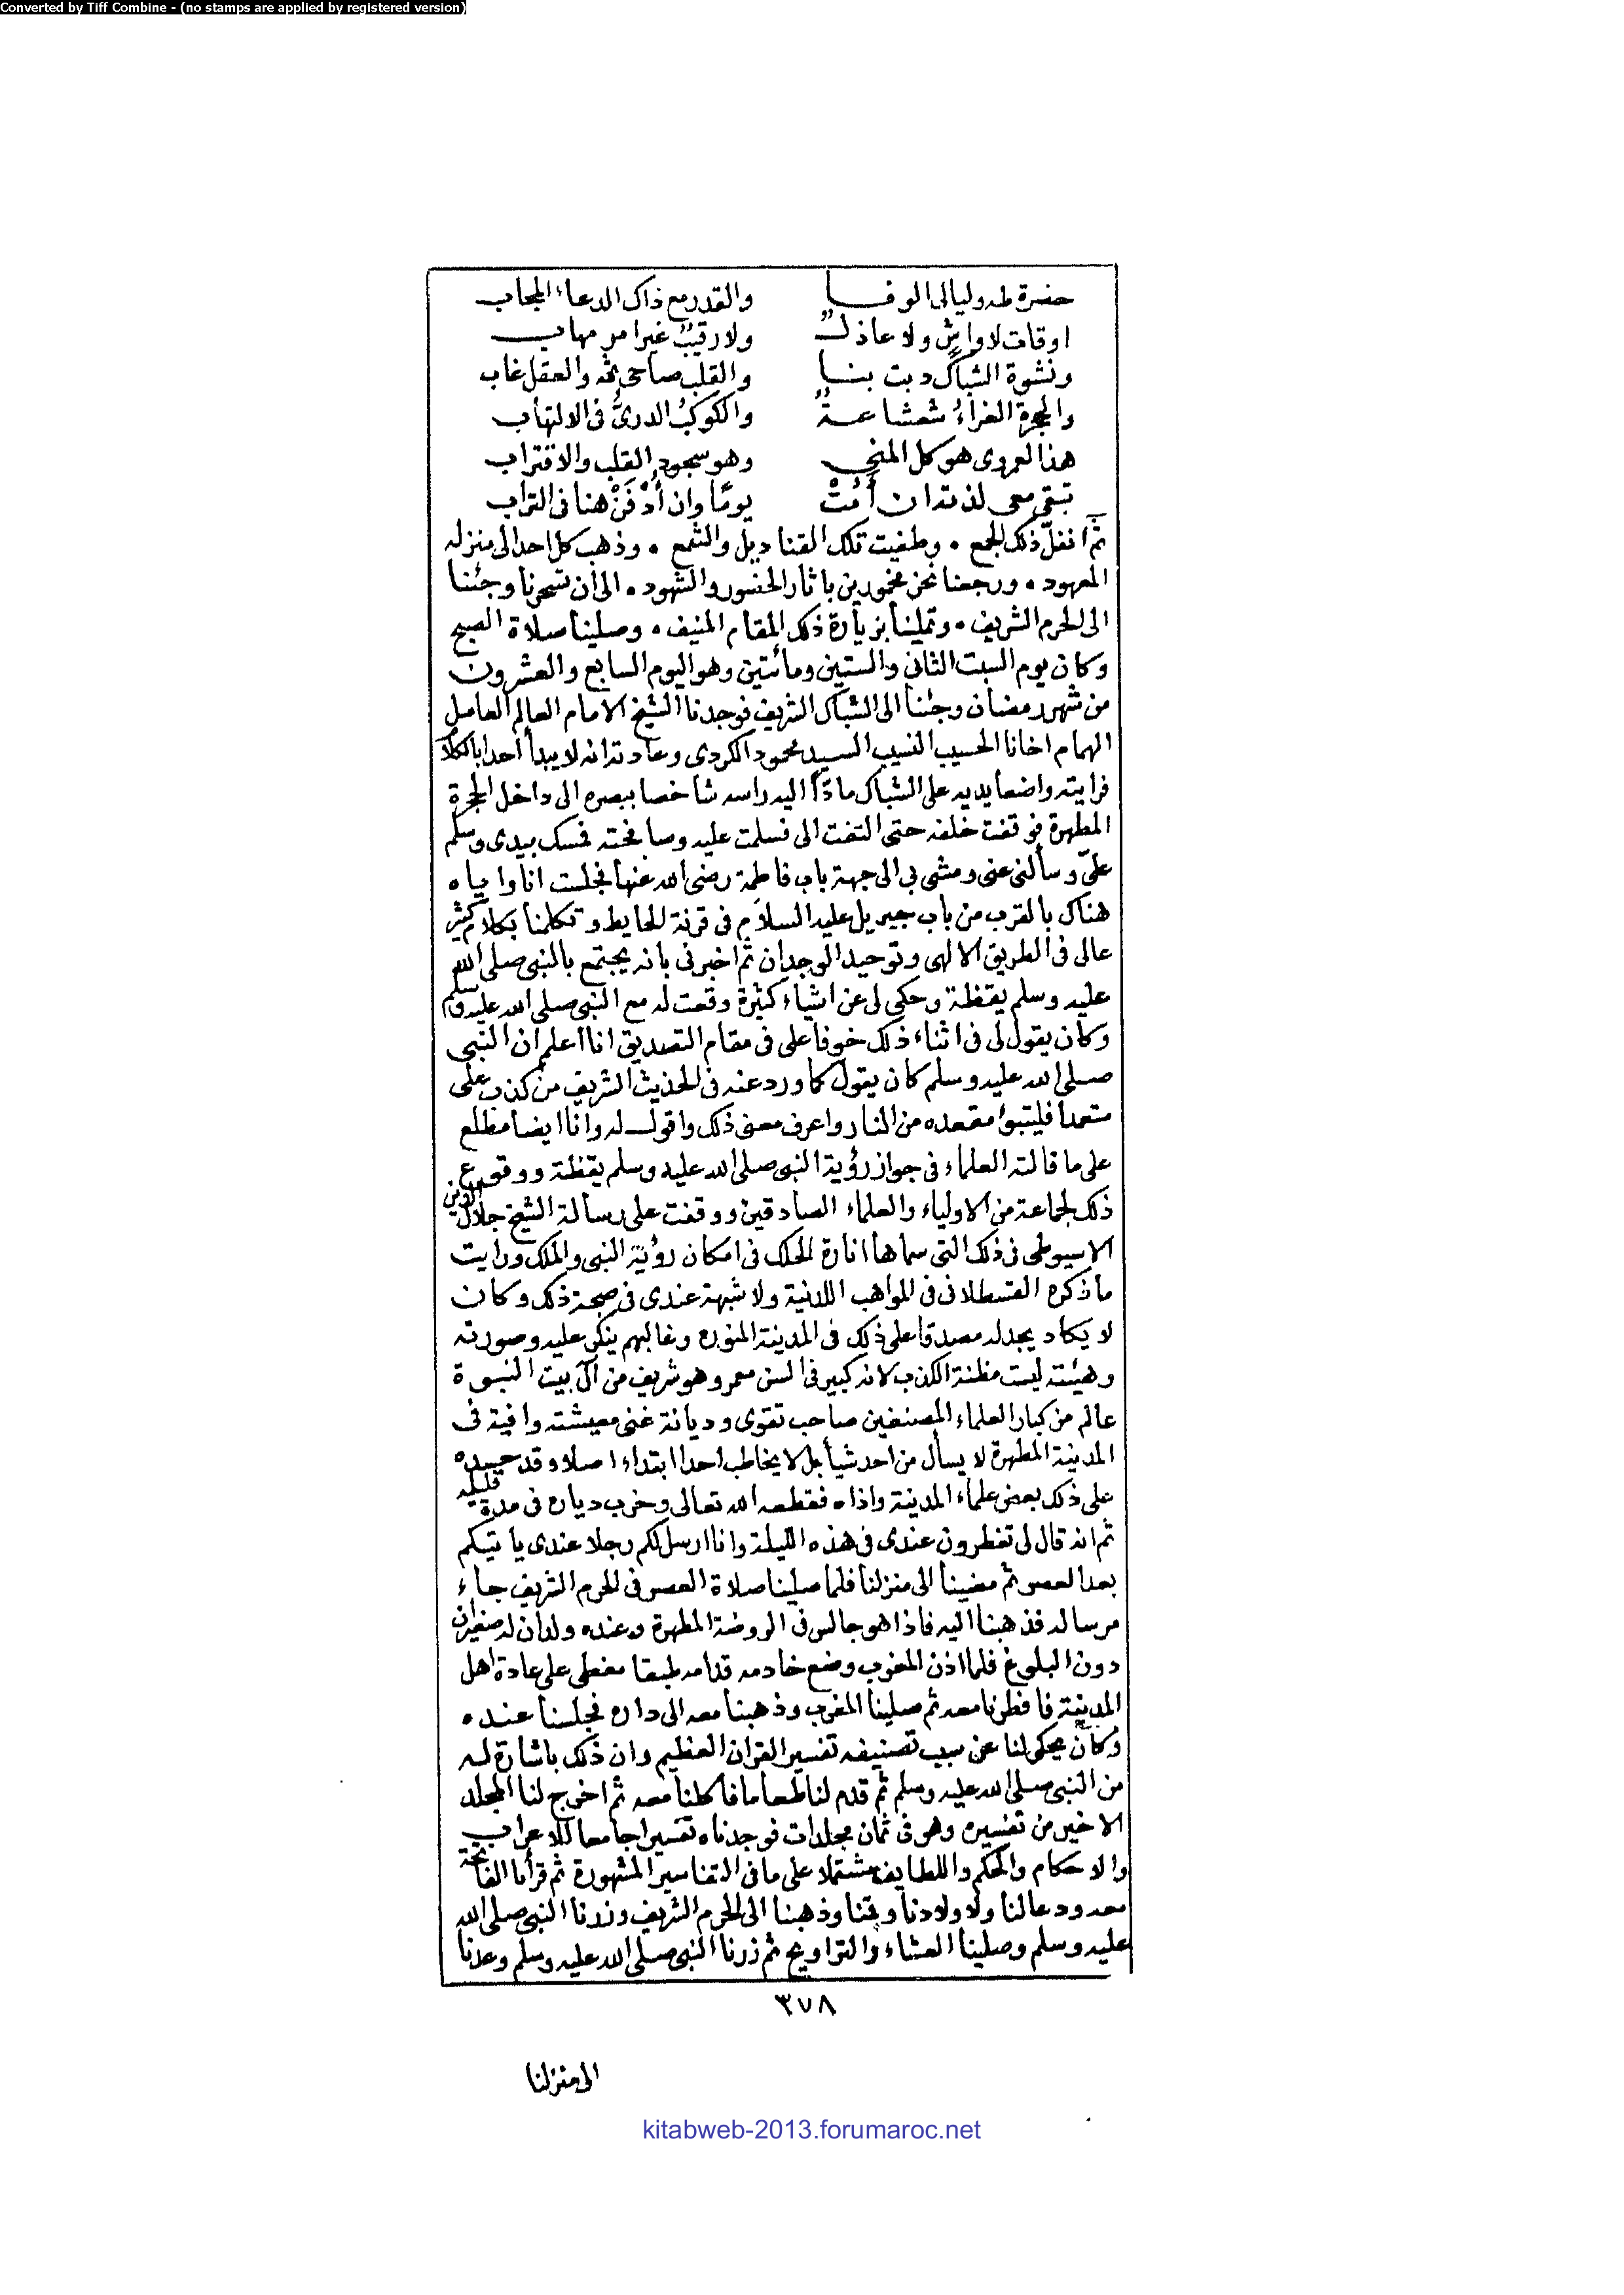 Converted by Tiff Combine - (no stamps are applied by registered version)
حضرة طه وليالى الوفا والقدر مع ذاك الدعاء المجاب
اوقات لا واش ولا عاذل ولا رقيب غير امر مهاب
ونشوة الشباك دبت بنا والقلب صاحى ثم والعقل غاب
والحجرة الغراء شعشاعة والكوكب الدرى فى الالتهاب
هذا لعمروى هو كل المنى وهو سجود القلب والاقتراب
تبقى معى لذته ان أمت يومًا وان أدفن هنا فى التراب
ثم انفل ذلك الجمع ٠ وطفيت تلك القناديل والشمع ٠ وذهب كل احد الى منزله
المعهود ٠ ورجعنا نحن مخمورين باثار الحضور والشهود ٠ الى أن تسحرنا وجئنا
الى الحرم الشريف ٠ وتملينا بزيارة ذلك المقام المنيف ٠ وصلينا صلاة الصبح
وكان يوم السبت الثانى والستين ومائتين وهو اليوم السابع والعشرون
من شهر رمضان وجئنا الى الشباك الشريف فوجدنا الشيخ الامام العالم العامل
الهمام اخانا الحسيب النسيب السيد محمود الكردى وعادته انه لا يبدأ أحدا بالكلام
فرايته واضعا يديه على الشباك مادّا اليه راسه شاخصا ببصره الى داخل الحجرة
المطهرة فوقفت خلفه حتى التفت الى فسلمت عليه وصافحته فمسك بيدى وسلم
علىّ وسألنى عنى ومشى بى الى جهة باب فاطمة رضى الله عنها فجلست انا واياه
هناك بالقرب من باب جبريل عليه السلام فى قرنة الحايط وتكلمنا بكلام كثير
عالى فى الطريق الالهى وتوحيد الوجدان ثم اخبرنى بانه يجتمع بالنبى صلى الله
عليه وسلم يقظة وحكى لى عن اشياء كثيرة وقعت له مع النبى صلى الله عليه وسلم
وكان يقول لى فى اثناء ذلك خوفا على فى مقام التصديق انا اعلم ان النبى
صلى الله عليه وسلم كان يقول كما ورد عنه فى الحديث الشريف من كذب على
متعمدا فليتبوأ مقعده من النار واعرف معنى ذلك واقول له وانا ايضا مطلع
على ما قالته العلماء فى جواز رؤية النبى صلى الله عليه وسلم يقظة ووقوع
ذلك لجماعة من الاولياء والعلماء الصادقين ووقفت على رسالة الشيخ جلال الدين
الاسيوطى فى ذلك التى سماها انارة الحلك فى امكان رؤية النبى والملك ورايت
ما ذكره القسطلانى فى المواهب اللدنية ولا شبهة عندى فى صحة ذلك وكان
لا يكاد يجد له مصدقا على ذلك فى المدينة المنوره وغالبهم ينكر عليه وصورته
وهيئته ليست مظنة الكذب لانه كبير فى السن معمر وهو شريف من آل بيت النبوة
عالم من كبار العلماء المصنفين صاحب تقوى وديانة غنى معيشته وافية فى
المدينة المطهرة لا يسأل من احد شيأ بل لا يخاطب احدا ابتداء اصلا وقد حسده
على ذلك بعض علماء المدينة واذاه فقطعه الله تعالى وخرب دياره فى مدة قليله
ثم انه قال لى تفطرون عندى فى هذه الليلة وانا ارسل لكم رجلا عندى ياتيكم
بعد العصر ثم مضينا الى منزلنا فلما صلينا صلاة العصر فى الحرم الشريف جاء
مرساله فذهبنا اليه فاذا هو جالس فى الروضة المطهرة وعنده ولدان له صغيران
دون البلوغ فلما اذن المغرب وضع خادمه قدامه طبقا مغطى على عادة اهل
المدينة فافطرنا معه ثم صلينا المغرب وذهبنا معه الى داره فجلسنا عنده
وكان يحكى لنا عن سبب تصنيفه تفسير القرآن العظيم وان ذلك باشارة له
من النبى صلى الله عليه وسلم ثم قدم لنا طعاما فاكلنا معه ثم اخرج لنا المجلد
الاخير من تفسيره وهو فى ثمان مجلدات فوجدناه تفسيرا جامعا للاعراب
والاحكام والحكم واللطايف مشتملا على ما فى التفاسير المشهورة ثم قرأنا الفاتحة
معه ودعا لنا ولاولادنا وقمنا وذهبنا الى الحرم الشريف وزرنا النبى صلى الله
عليه وسلم وصلينا العشاء والتراويح ثم زرنا النبى صلى الله عليه وسلم وعدنا
٣٧٨
الى منزلنا
kitabweb-2013.forumaroc.net